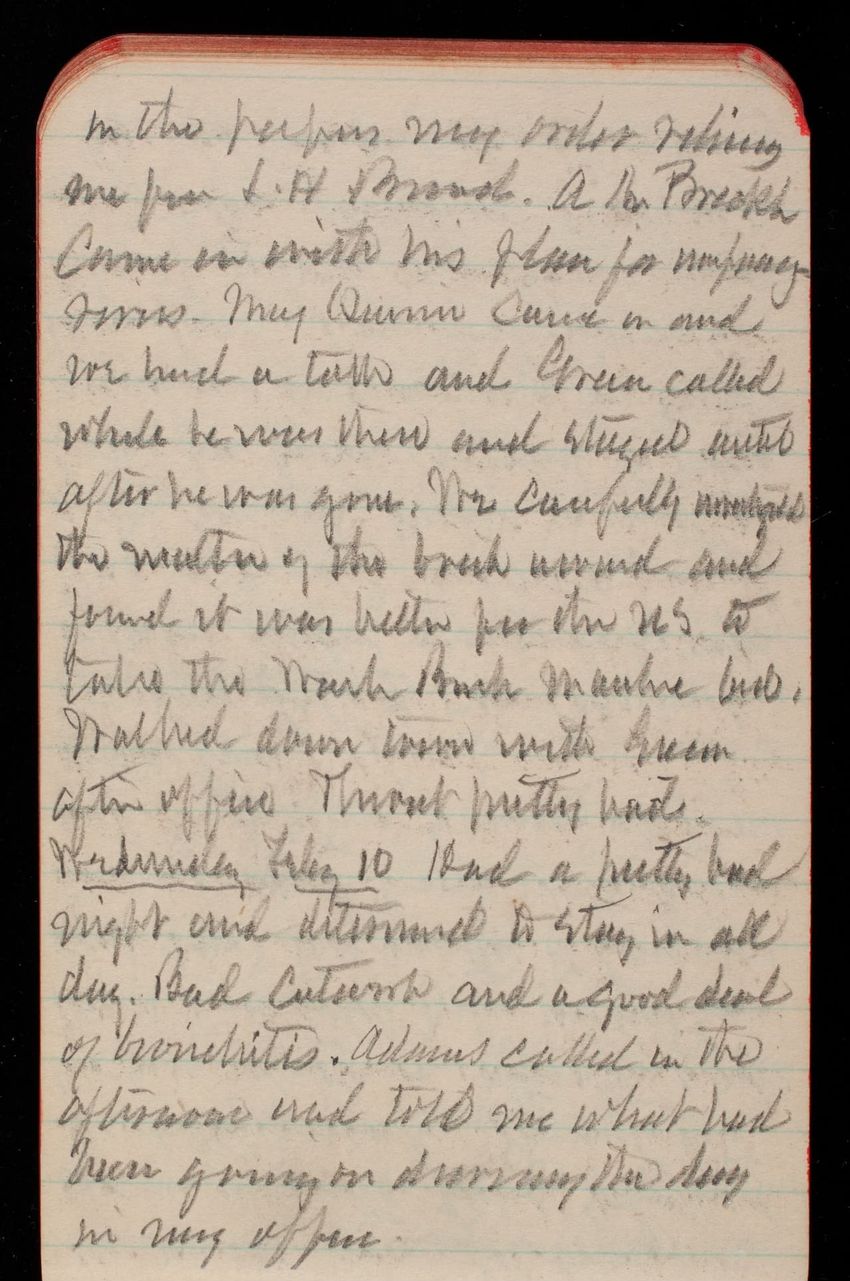 in the papers my order relieving
me from L. H Board. A Mr Breckh
Came in with his plan for
. Maj Quinn came in and
we had a talk and Green called
while he was there and stayed until
after he was gone. We carefully
the matter of the award and
found it was better for the US to
take the Wash Bank bid.
Walked down town with Green
after office Throat pretty bad.
Wednesday Feby 10 Had a pretty bad
night and determined to stay in all
day. Bad Catarrh and a good deal
of bronchitis. Adams called in the
afternoon and told me what had
been going on during the day
in my office.